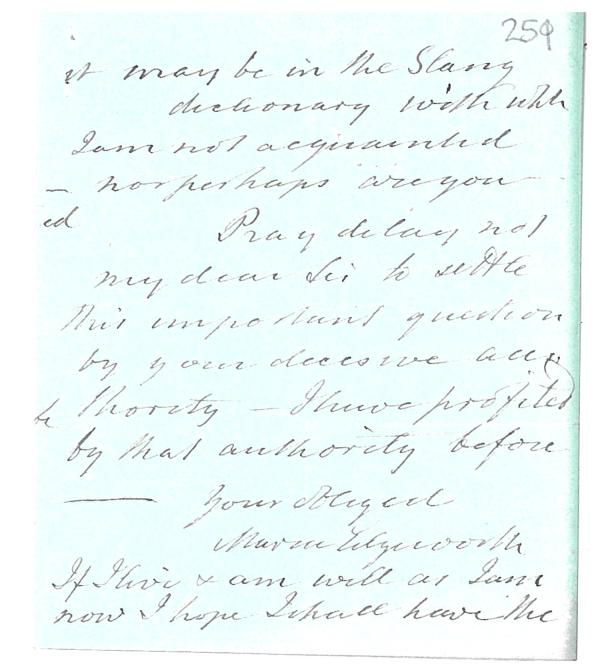 259
it may be in the Slang
dictionary with whh
I am not acquainted
— nor perhaps are you —
ed
Pray delay not
my dear Sir to settle
this important question
by your decesive au
be thority — I have profited
by that authority before
— Your obliged
Maria Edgeworth
If I live & am well as I am
now I hope I shall have the